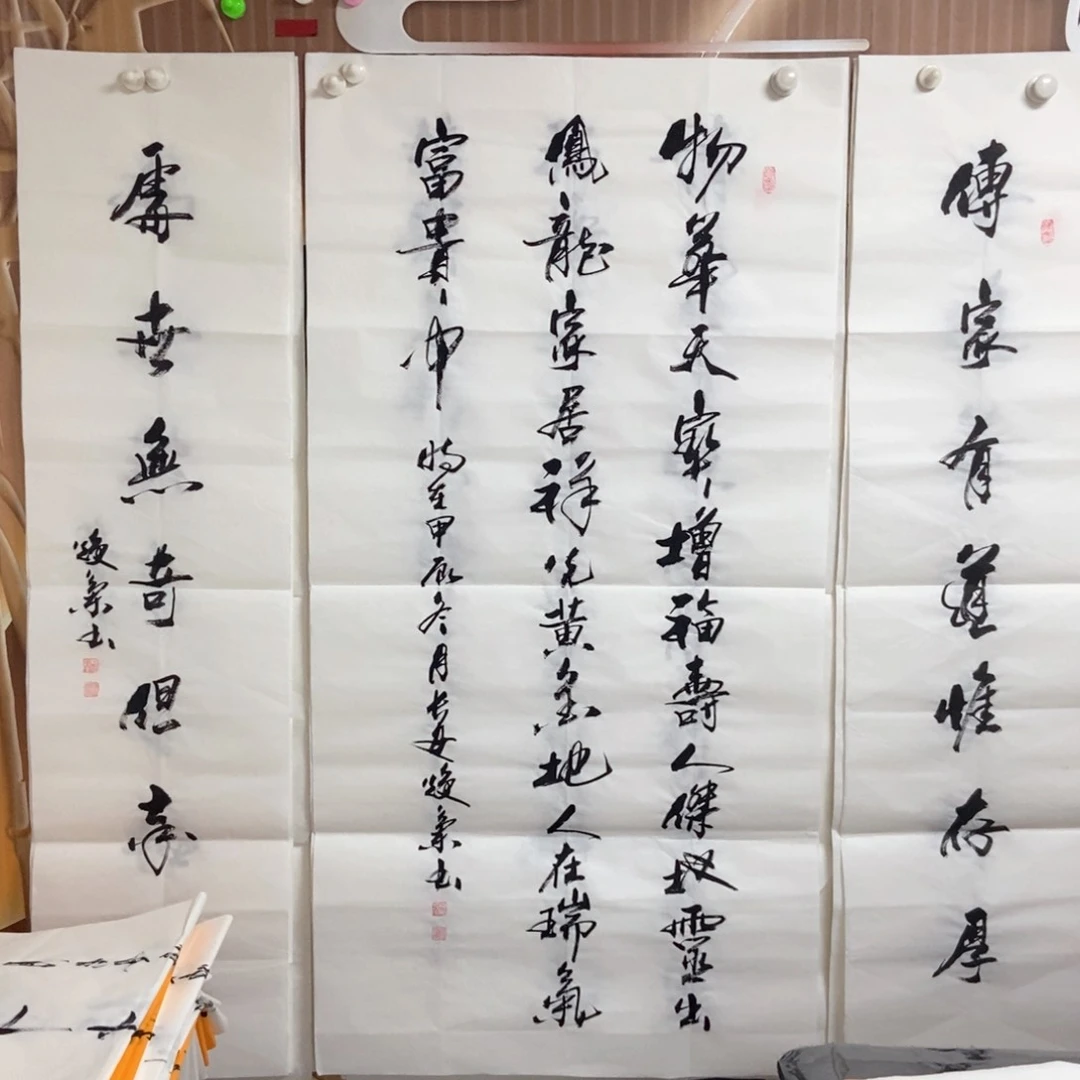 傳家有道惟存厚
物華天寶增福壽人傑地靈出
鳳龍家居祥光黃金地人在瑞氣
富貴中 時在甲辰冬月長安 书
處世無奇但率
书